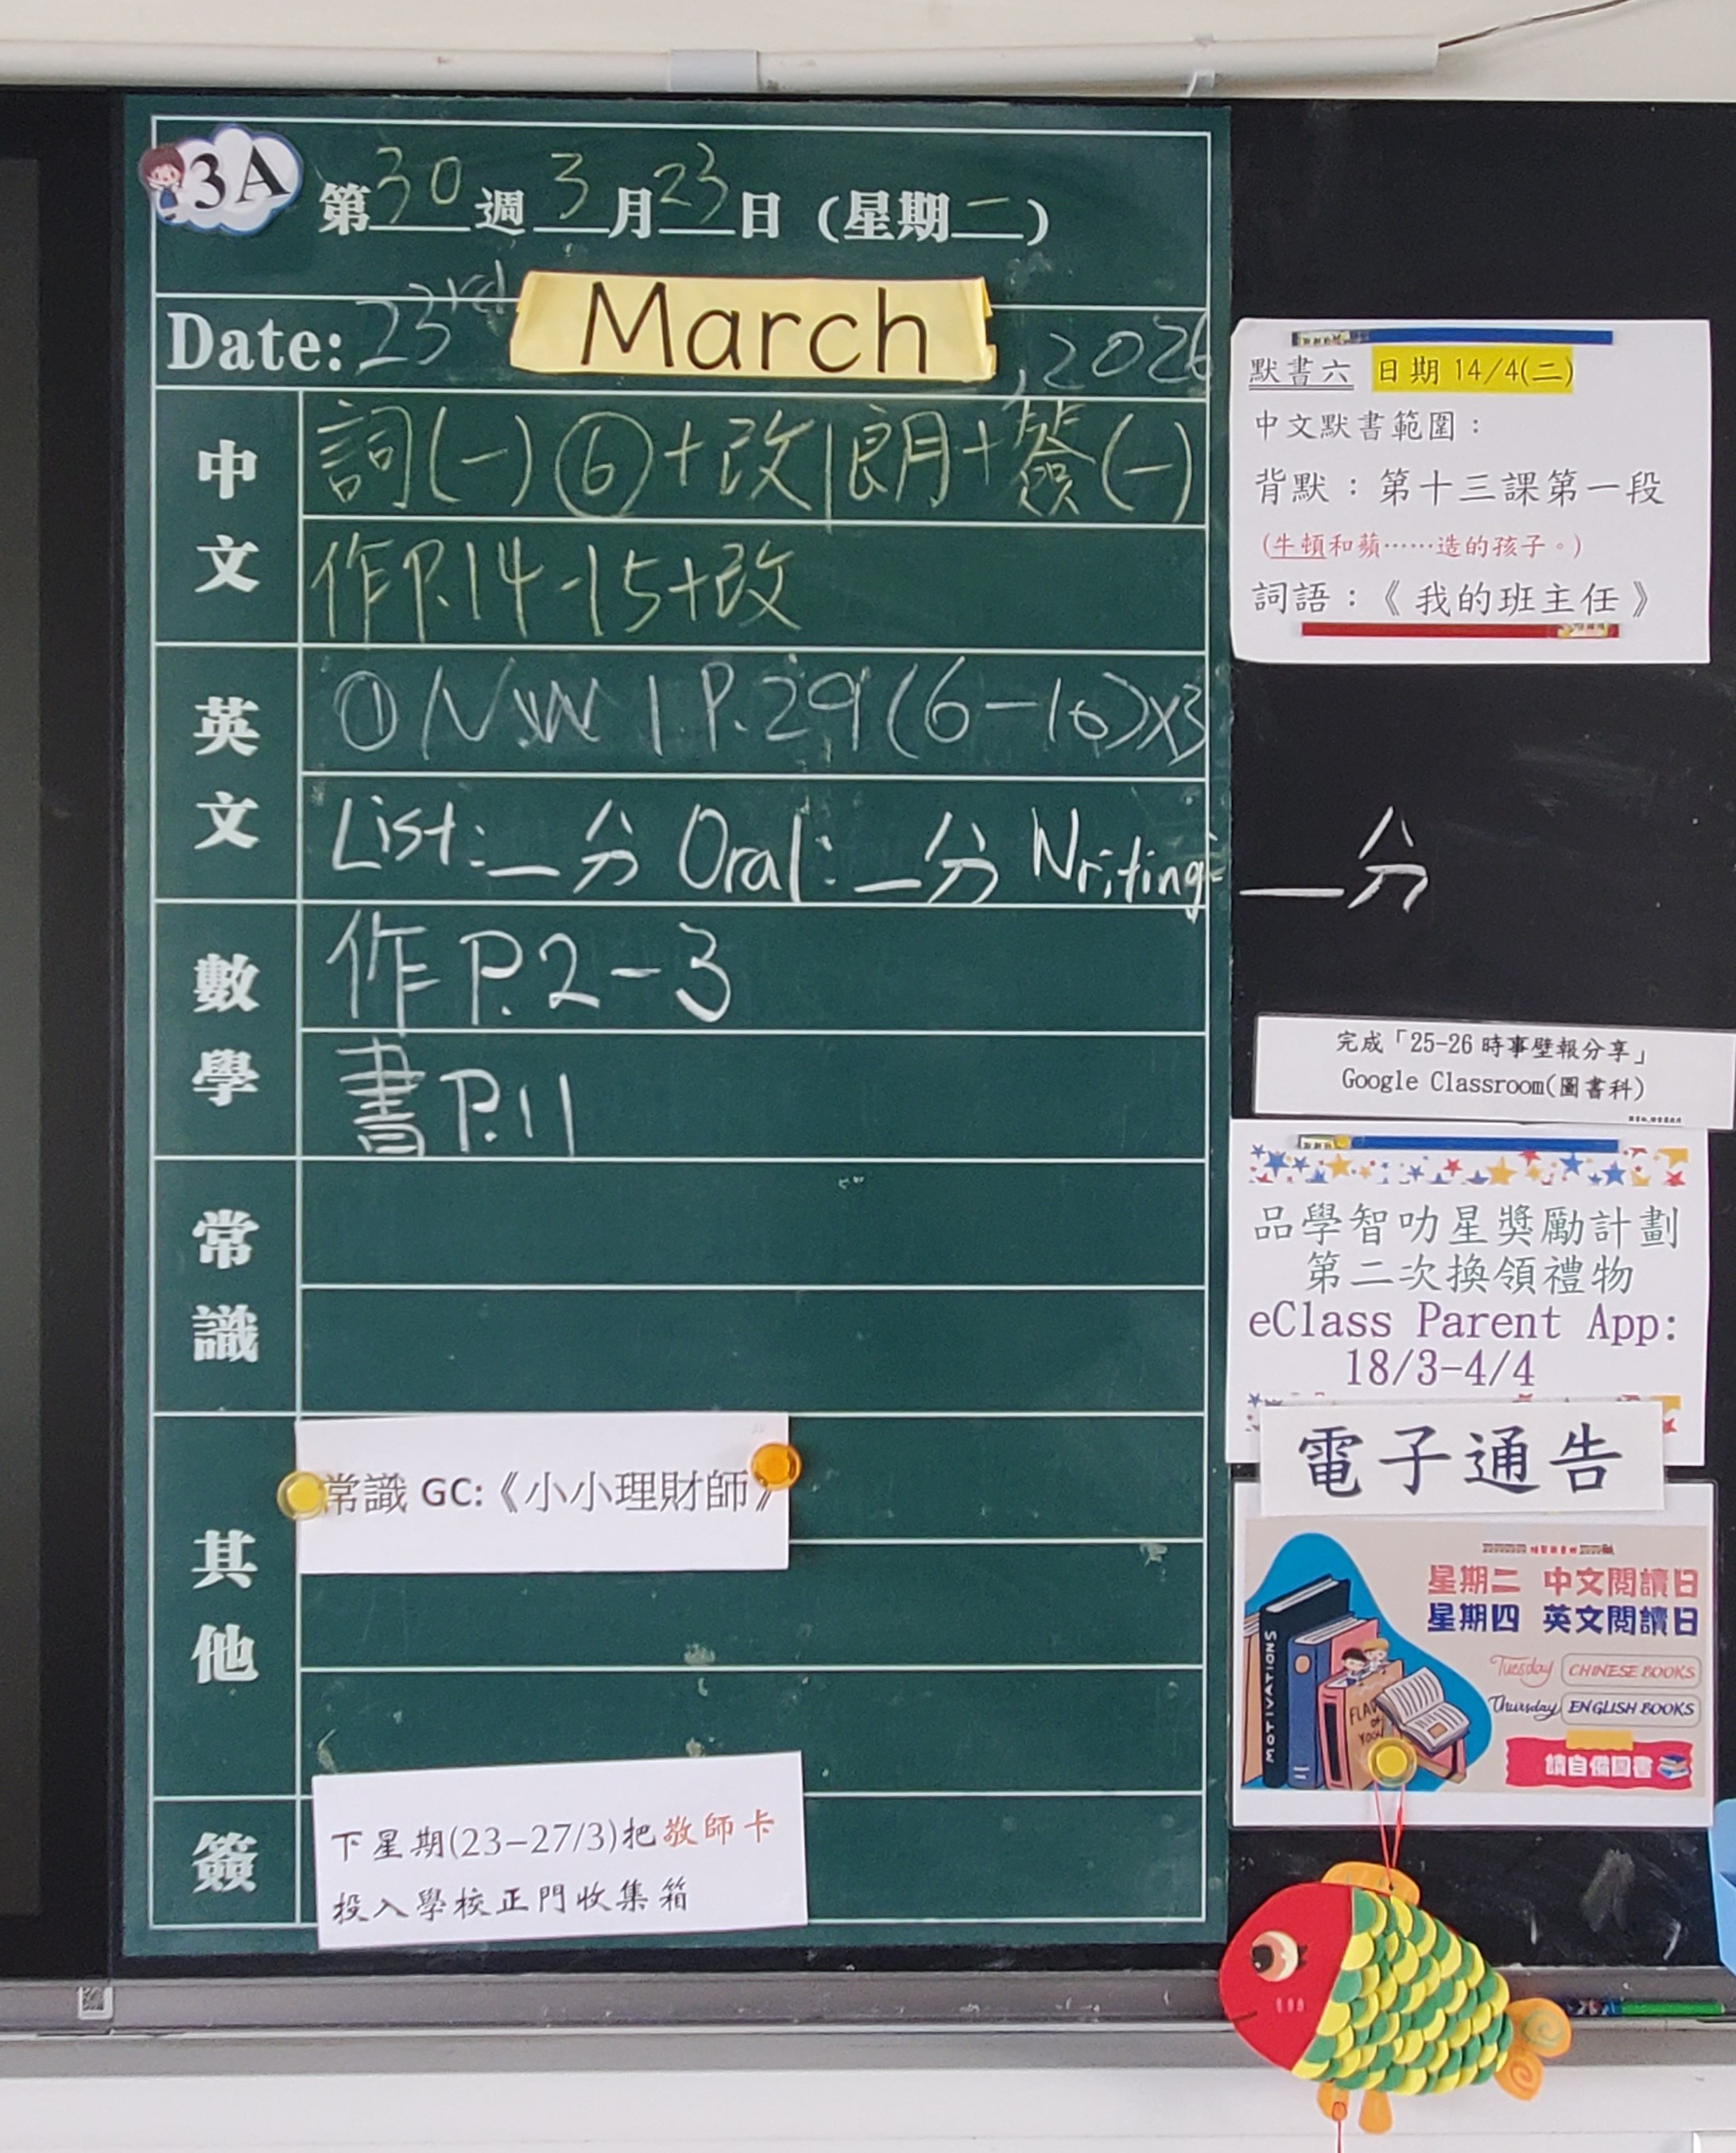 3A
第30週3月23日(星期二)
Date: 23rd March, 2026
中文
詞(一)⑥+改|朗+簽(一)
作P.14-15+改
英文
①N.W1 P.29(6-10)x3
List:_分 Oral:_分 Writing:_分
數學
作P.2-3
書P.11
常識
其他
常識 GC:《小小理財師》
簽
下星期(23-27/3)把敬師卡
投入學校正門收集箱
默書六 日期14/4(二)
中文默書範圍:
背默:第十三課第一段
(牛頓和蘋……造的孩子。)
詞語:《我的班主任》
完成「25-26時事壁報分享」
Google Classroom(圖書科)
品學智叻星獎勵計劃
第二次換領禮物
eClass Parent App:
18/3-4/4
電子通告
星期二 中文閱讀日
星期四 英文閱讀日
Tuesday CHINESE BOOKS
Thursday ENGLISH BOOKS
請自備圖書
MOTIVATIONS